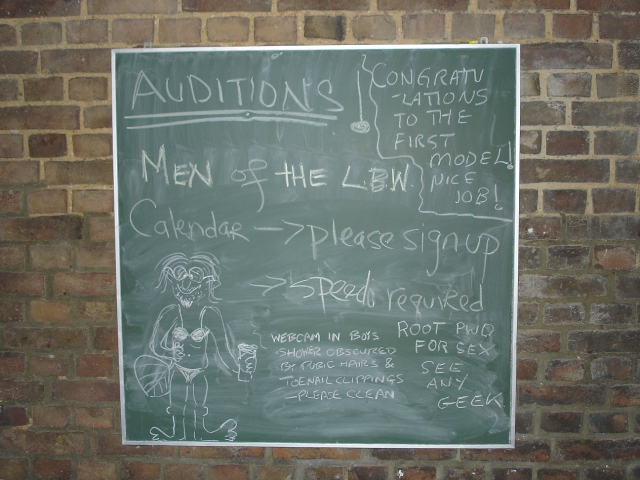 AUDITIONS!
MEN of THE L.B.W.
Calendar → please sign up
→ Speedo required
CONGRATU
-LATIONS
TO THE
FIRST
MODEL!
NICE
JOB!
WEBCAM IN BOYS
SHOWER OBSCURED
BY PUBIC HAIRS &
TOENAIL CLIPPINGS
-PLEASE CLEAN
ROOT PWD
FOR SEX
SEE
ANY
GEEK